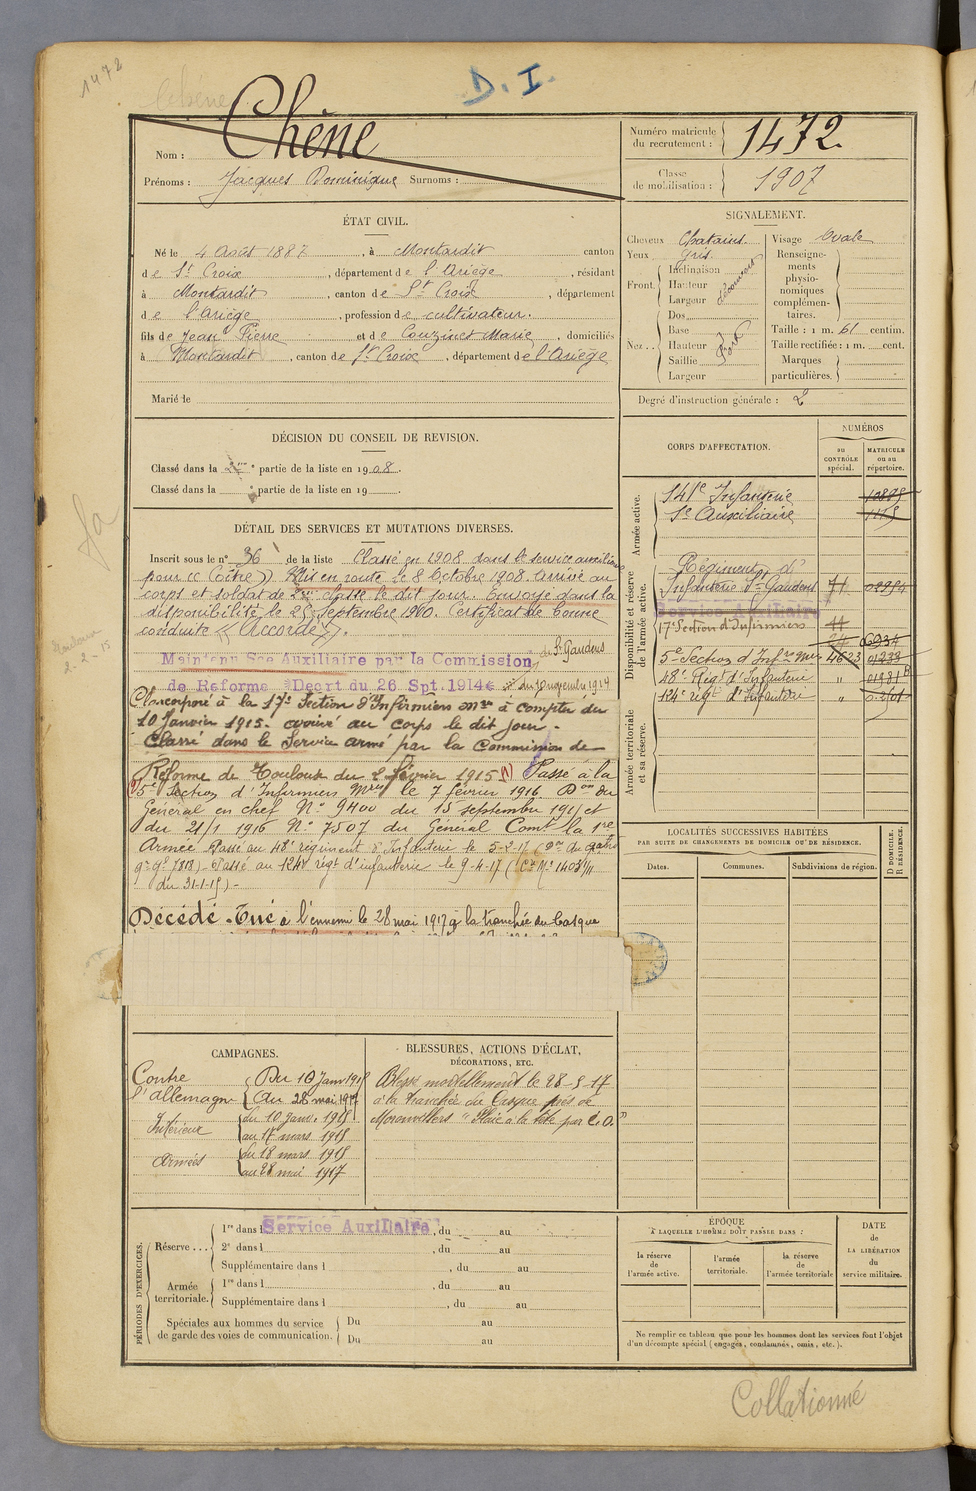 1472
Chêne
D. I.
Nom : Chêne
Prénoms : Jacques Dominique Surnoms :
Numéro matricule du recrutement : 1472.
Classe de mobilisation : 1907
ÉTAT CIVIL.
Né le 4 Août 1887, à Montardit canton
de St Croix, département de l'Ariège, résidant
à Montardit, canton de St Croix, département
de l'Ariège, profession de cultivateur.
fils de Jean Pierre et de Couzinet Marie, domiciliés
à Montardit, canton de St Croix, département de l'Ariège
Marié le
SIGNALEMENT.
Cheveux Chatains.
Yeux gris.
Front
Inclinaison
Hauteur
Largeur
Nez..
Dos
Base
Hauteur
Saillie
Largeur
Visage Ovale
Renseignements physionomiques complémentaires.
Taille : 1 m. 61 centim.
Taille rectifiée : 1 m. cent.
Marques particulières.
Degré d'instruction générale : 2
DÉCISION DU CONSEIL DE REVISION.
Classé dans la partie de la liste en 1908.
Classé dans la partie de la liste en 19
CORPS D'AFFECTATION.
NUMÉROS
au CONTRÔLE spécial.
MATRICULE ou au répertoire.
Armée active.
141e Infanterie 10875
Se Auxiliaire
Disponibilité et réserve de l'armée active.
Régiment d'
Infanterie St Gaudens 71
Service Auxiliaire
17e Section d'Infirmiers 44
24 6934
5e Section d'Infres Mres 4623 01233
48e Régt d'Infanterie " 01981
124e régt d'Infanterie "
Armée territoriale et sa réserve.
DÉTAIL DES SERVICES ET MUTATIONS DIVERSES.
Inscrit sous le n° 36 de la liste Classé en 1908 dans le service auxiliaire
pour (( Goître )) Mis en route le 8 Octobre 1908. arrivé au
corps et soldat de 2me classe le dit jour. Envoyé dans la
disponibilité le 25 Septembre 1910. Certificat de bonne
conduite (( Accordé )).
de St Gaudens
Maintenu Sce Auxiliaire par la Commission
de Réforme Décrt du 26 Spt. 1914 du 10 novembre 1914
Incorporé à la 17e Section d'Infirmiers Mres à compter du
10 Janvier 1915. arrivé au corps le dit jour.
Classé dans le Service armé par la Commission de
Réforme de Toulouse du 2 février 1915 (1) Passé à la
5e Section d'Infirmiers Mres le 7 février 1916. Don du
Général en chef N° 9400 du 15 septembre 1915 et
du 21/1 1916 N° 7507 du Général Comt la 1re
Armée Passé au 48e régiment d'Infanterie le 5-2-17
Passé au 124e régt d'infanterie le 9-4-17
du 31-1-15) -
Décédé. Tué à l'ennemi le 28 mai 1917 à la tranchée du Casque
LOCALITÉS SUCCESSIVES HABITÉES
PAR SUITE DE CHANGEMENTS DE DOMICILE OU DE RÉSIDENCE.
Dates.
Communes.
Subdivisions de région.
D DOMICILE.
R RÉSIDENCE.
CAMPAGNES.
Contre l'allemagne
Du 10 Janv 1915
Au 28 mai 1917
Intérieur
du 10 Janv. 1915
au 17 mars 1915
Armées
du 18 mars 1915
au 28 mai 1917
BLESSURES, ACTIONS D'ÉCLAT,
DÉCORATIONS, ETC.
Blessé mortellement le 28-5-17
à la tranchée du Casque près de
Moronvillers "Plaie à la tête par E.O."
PÉRIODES D'EXERCICES.
Réserve ...
1re dans l Service Auxiliaire, du au
2e dans l, du au
Supplémentaire dans l, du au
Armée territoriale.
1re dans l, du au
Supplémentaire dans l, du au
Spéciales aux hommes du service de garde des voies de communication.
Du au
Du au
ÉPOQUE
À LAQUELLE L'HOMME DOIT PASSER DANS :
la réserve de l'armée active.
l'armée territoriale.
la réserve de l'armée territoriale
DATE de LA LIBÉRATION du service militaire.
Ne remplir ce tableau que pour les hommes dont les services font l'objet
d'un décompte spécial (engagés, condamnés, omis, etc.).
Collationné